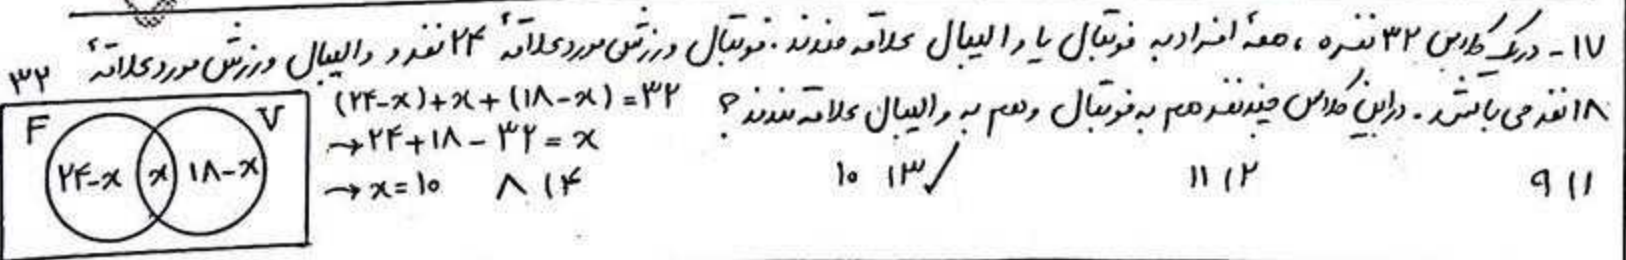 ۱۷- در یک کلاس ۳۲ نفره ، همهٔ افراد به فوتبال یا والیبال علاقه مندند . فوتبال ورزش مورد علاقهٔ ۲۴ نفر و والیبال ورزش مورد علاقهٔ
۱۸ نفر می باشد . در این کلاس چند نفر هم به فوتبال و هم به والیبال علاقه مندند ؟
۱) ۹ ۲) ۱۱ ۳) ۱۰ ✓ ۴) ۸
(۲۴-x)+x+(۱۸-x)=۳۲
→۲۴+۱۸-۳۲=x
→x=۱۰
۳۲
F V
۲۴-x x ۱۸-x